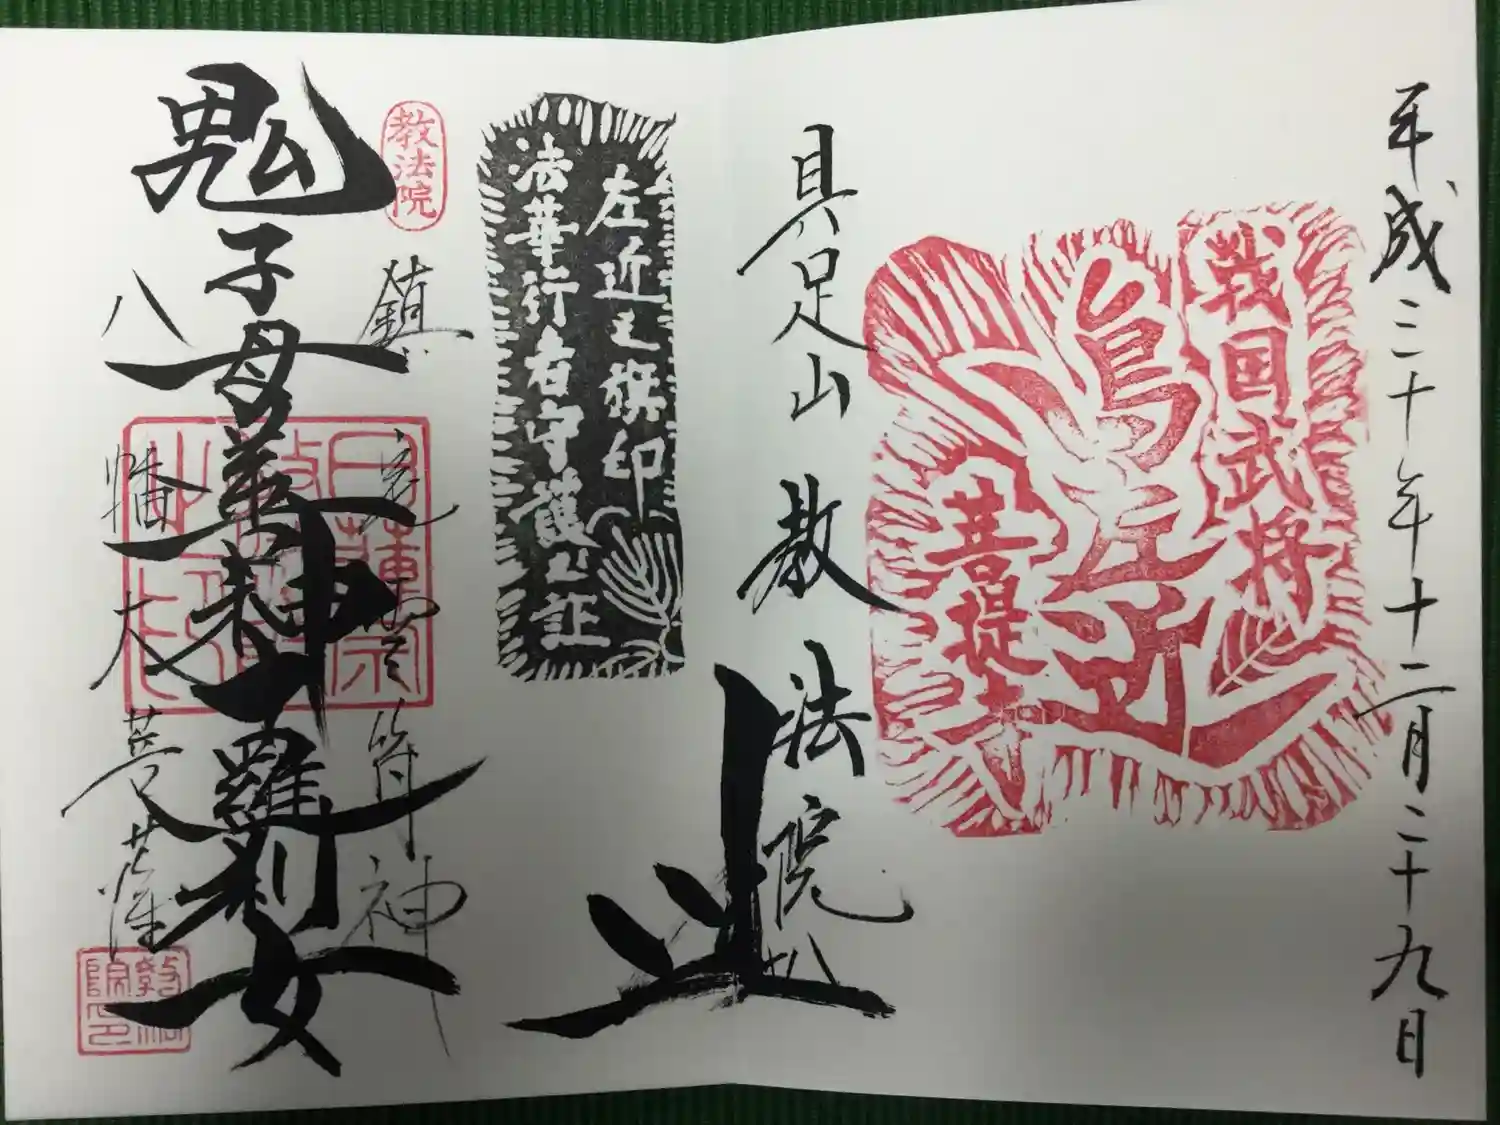 平成三十年十二月二十九日
戦国武将
島左近
菩提寺
具足山教法院
左近之旗印
法華行者守護之証
教法院
鎮宅霊符神
鬼子母善神十羅刹女
八幡大菩薩
教法院印